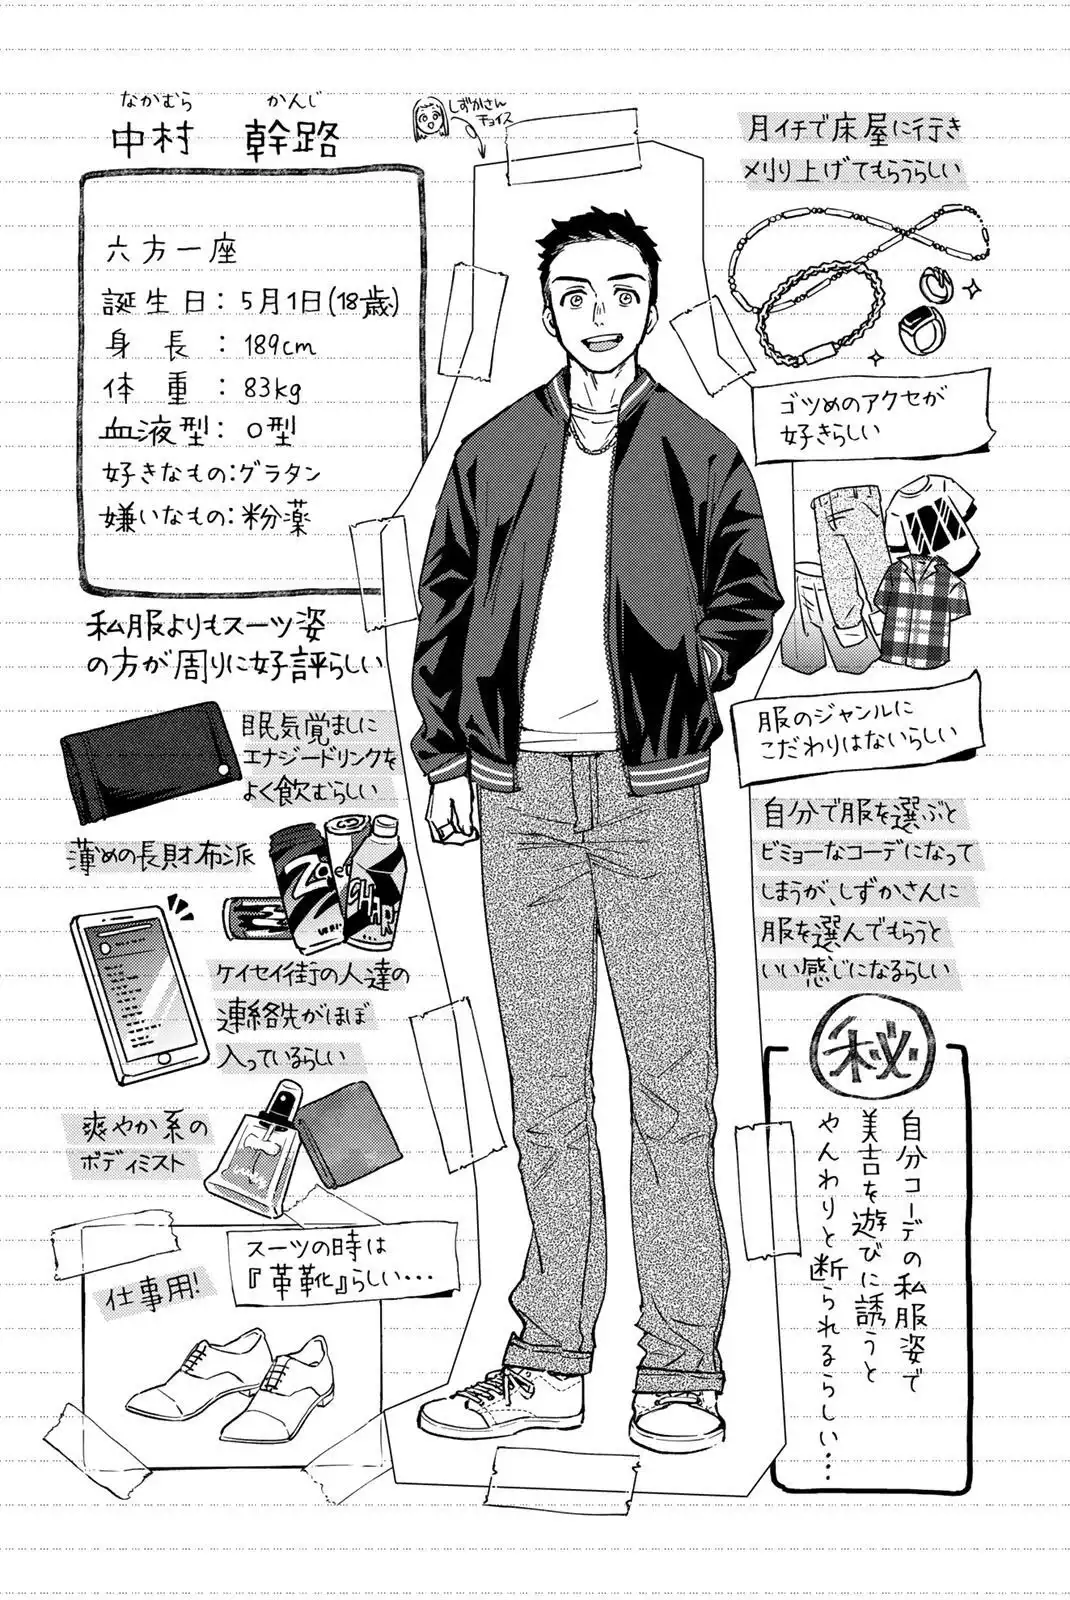 なかむら かんじ
中村 幹路
六方一座
誕生日：5月1日(18歳)
身長：189cm
体重：83kg
血液型：O型
好きなもの：グラタン
嫌いなもの：粉薬
私服よりもスーツ姿
の方が周りに好評らしい
しずかさん
チョイス
月イチで床屋に行き
刈り上げてもらうらしい
ゴツめのアクセが
好きらしい
服のジャンルに
こだわりはないらしい
自分で服を選ぶと
ビミョーなコーデになって
しまうが、しずかさんに
服を選んでもらうと
いい感じになるらしい
眠気覚ましに
エナジードリンクを
よく飲むらしい
薄めの長財布派
CHAR
ケイセイ街の人達の
連絡先がほぼ
入っているらしい
爽やか系の
ボディミスト
スーツの時は
『革靴』らしい…
仕事用!
秘
自分コーデの私服姿で
美吉を遊びに誘うと
やんわりと断られるらしい…